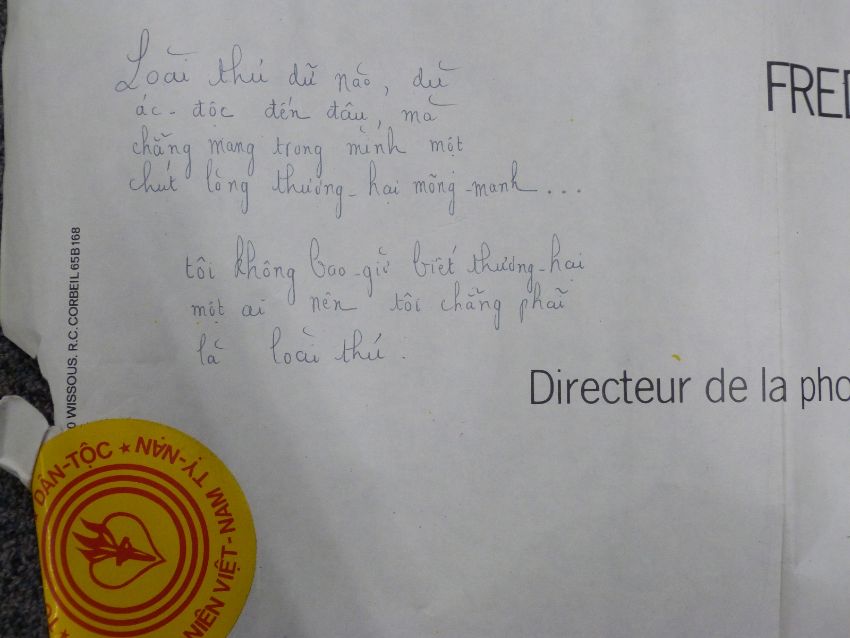 Loài thú dữ nào, dù
ác-độc đến đâu, mà
chẳng mang trong mình một
chút lòng thương-hại mỏng-manh...
tôi không bao-giờ biết thương-hại
một ai nên tôi chẳng phải
là loài thú.
FRED
Directeur de la pho
0 WISSOUS. R.C. CORBEIL 65B168
DÂN-TỘC ★ NIÊN VIỆT-NAM TỴ-NẠN ★